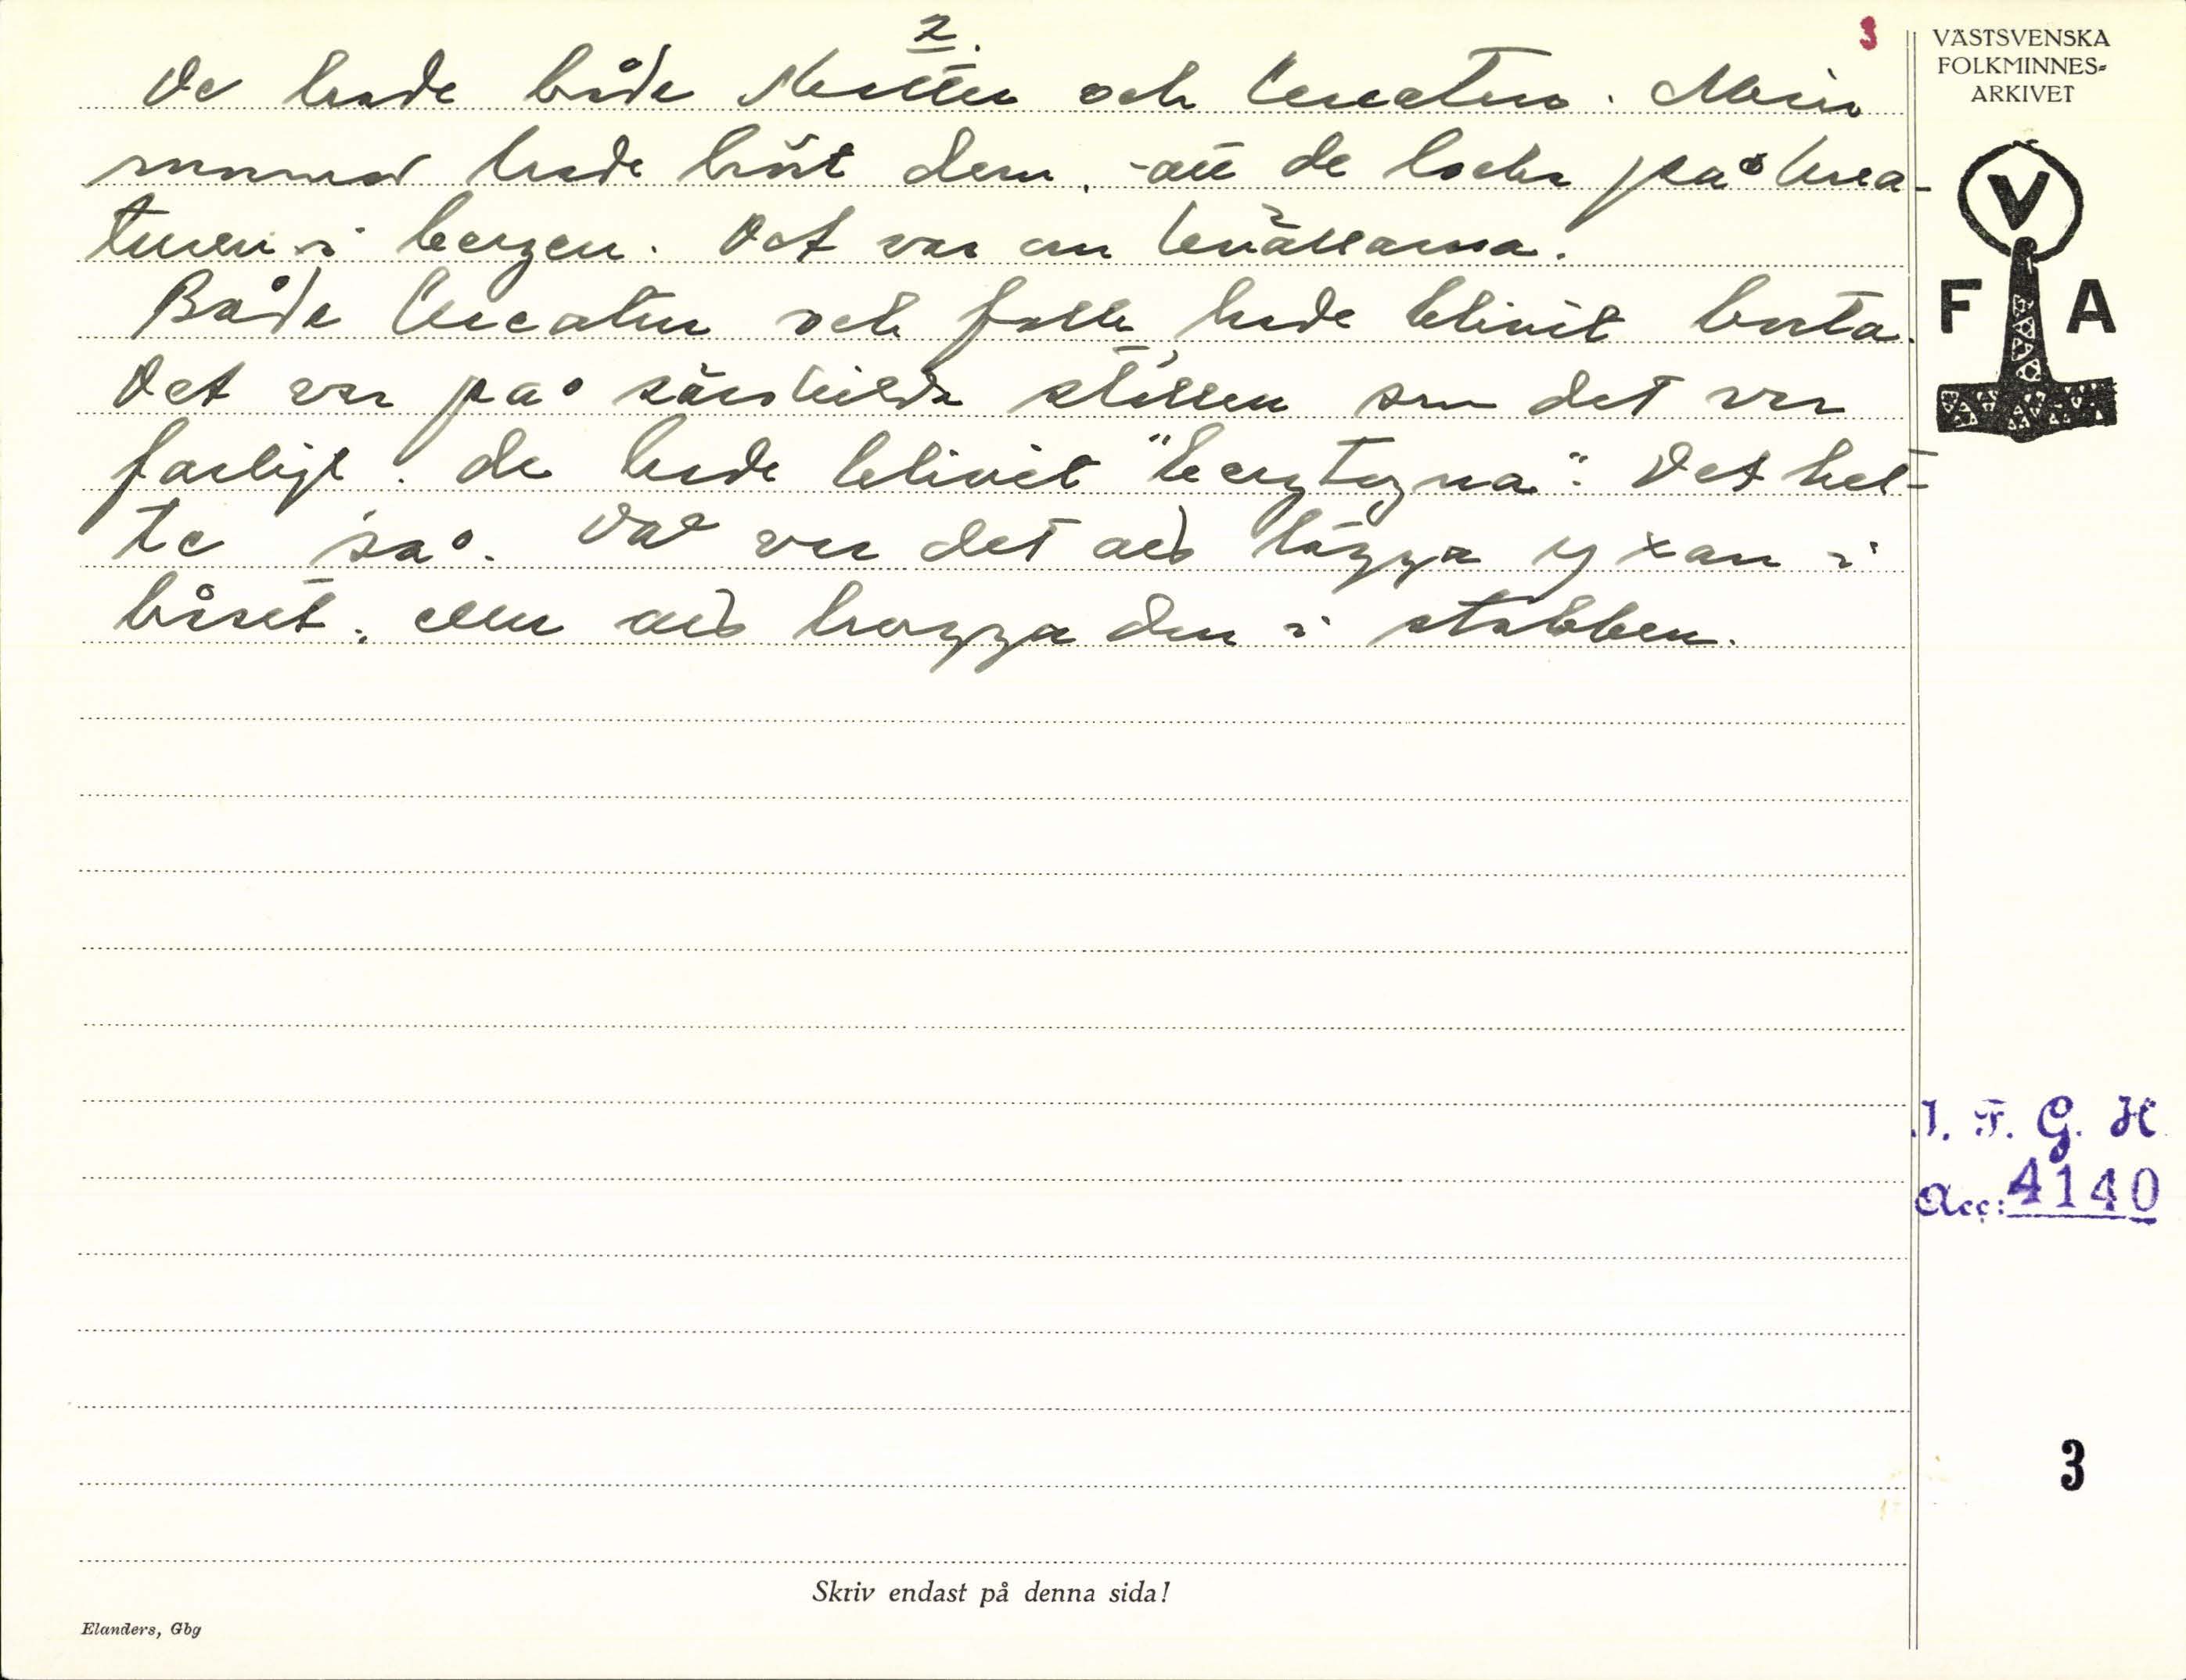 2.
3
De hade både katter och kreatur. Min
mormor hade hört dem, att de locka på krea-
turen i bergen. Det var om kvällarna.
Både kreatur och folk hade blivit borta.
Det var på särskilda ställen som det var
farligt. de hade blivit "bergtagna". Det het-
te så. Då var det att lägga yxan i
båset, eller att hugga den i stabben.
VÄSTSVENSKA
FOLKMINNES-
ARKIVET
V
F A
I. F. G. H
Acc: 4140
3
Skriv endast på denna sida!
Elanders, Gbg